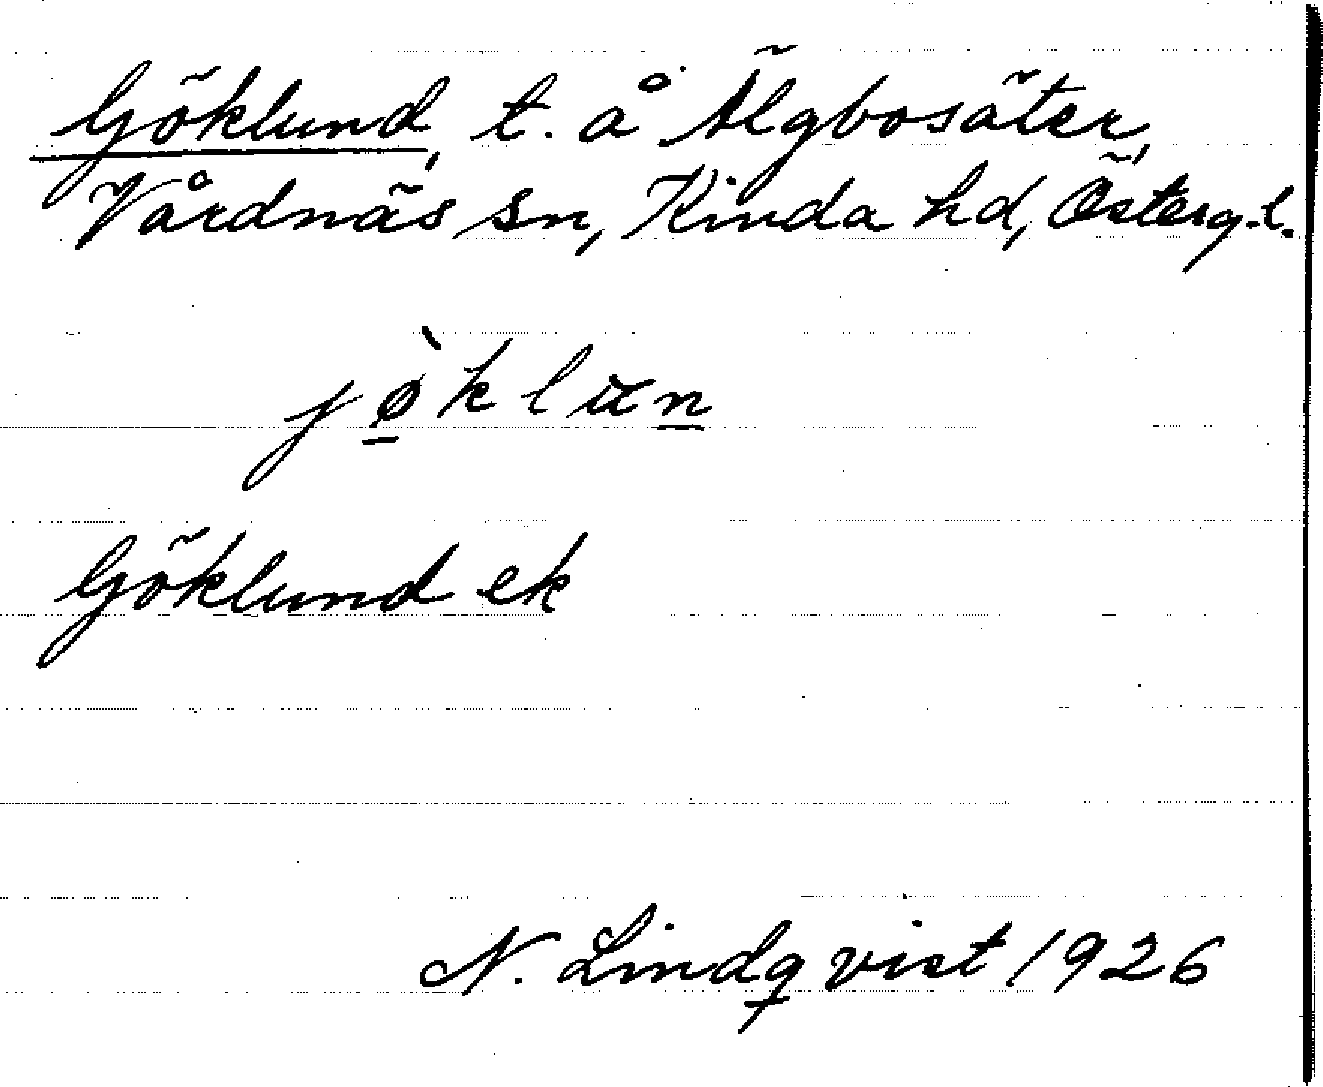 Göklund, t. å Älgbosäter,
Vårdnäs sn, Kinda hd, Österg.l.
jø̀klun
Göklund ek
N. Lindqvist 1926